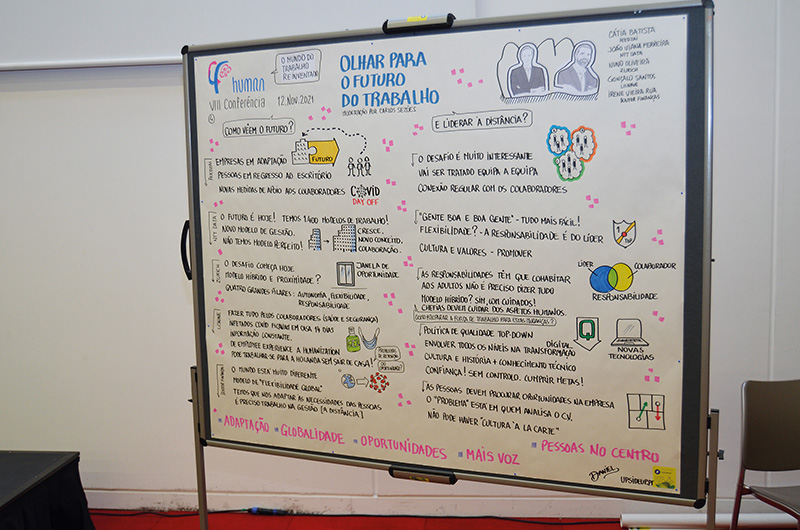 human
VIII Conferência
O MUNDO DO
TRABALHO
REINVENTADO!
12.NOV.2021
OLHAR PARA
O FUTURO
DO TRABALHO
MODERAÇÃO POR CARLOS SEZÕES
CÁTIA BATISTA
JOÃO VIANA FERREIRA
NTT DATA
NUNO OLIVEIRA
ZURICH
GONÇALO SANTOS
IRENE VIEIRA RUA
COMO VÊEM O FUTURO?
EMPRESAS EM ADAPTAÇÃO
PESSOAS EM REGRESSO AO ESCRITÓRIO
NOVAS MEDIDAS DE APOIO AOS COLABORADORES
FUTURO
COVID
DAY OFF
NTT DATA
O FUTURO É HOJE! TEMOS 1400 MODELOS DE TRABALHO!
NOVO MODELO DE GESTÃO.
NÃO TEMOS MODELO PERFEITO!
CRESCE,
NOVO CONCEITO,
COLABORAÇÃO.
ZURICH
O DESAFIO COMEÇA HOJE
MODELO HÍBRIDO E PROXIMIDADE?
QUATRO GRANDES PILARES: AUTONOMIA, FLEXIBILIDADE,
RESPONSABILIDADE
JANELA DE
OPORTUNIDADE
FAZER TUDO PELOS COLABORADORES (SAÚDE E SEGURANÇA)
INFETADOS COVID FICAVAM EM CASA 14 DIAS
IMPORTAÇÃO CONSTANTE.
DE EMPLOYEE EXPERIENCE A HUMANIZATION
PODE TRABALHAR-SE PARA A HOLANDA SEM SAIR DE CASA!
PROBLEMA
DE RETENÇÃO
OU
OPORTUNIDADE?
O MUNDO ESTÁ MUITO DIFERENTE
MODELO DE "FLEXIBILIDADE GLOBAL"
TEMOS QUE NOS ADAPTAR ÀS NECESSIDADES DAS PESSOAS
É PRECISO TRABALHO NA GESTÃO [À DISTÂNCIA]
E LIDERAR À DISTÂNCIA?
O DESAFIO É MUITO INTERESSANTE
VAI SER TRATADO EQUIPA A EQUIPA
CONEXÃO REGULAR COM OS COLABORADORES
"GENTE BOA E BOA GENTE" - TUDO MAIS FÁCIL!
FLEXIBILIDADE? - A RESPONSABILIDADE É DO LÍDER
CULTURA E VALORES - PROMOVER
TOP
AS RESPONSABILIDADES TÊM QUE COABITAR
AOS ADULTOS NÃO É PRECISO DIZER TUDO
MODELO HÍBRIDO? SIM, COM CUIDADOS!
CHEFIAS DEVEM CUIDAR DOS ASPETOS HUMANOS.
LÍDER
COLABORADOR
RESPONSABILIDADE
COMO PREPARAR A FORÇA DE TRABALHO PARA ESTAS MUDANÇAS?
POLÍTICA DE QUALIDADE TOP-DOWN
ENVOLVER TODOS OS NÍVEIS NA TRANSFORMAÇÃO DIGITAL
CULTURA E HISTÓRIA + CONHECIMENTO TÉCNICO
CONFIANÇA! SEM CONTROLO. CUMPRIR METAS!
Q
NOVAS
TECNOLOGIAS
AS PESSOAS DEVEM PROCURAR OPORTUNIDADES NA EMPRESA
O "PROBLEMA" ESTÁ EM QUEM ANALISA O CV.
NÃO PODE HAVER "CULTURA À LA CARTE"
ADAPTAÇÃO
GLOBALIDADE
OPORTUNIDADES
MAIS VOZ
PESSOAS NO CENTRO
DANIEL
UPSIDEUP.PT